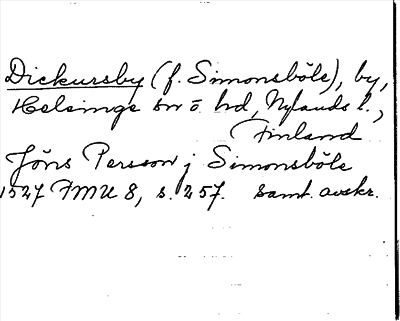 Dickursby (f. Simonsböle), by,
Helsinge sn o. hd, Nylands l.,
Finland
Jöns Persson j Simonsböle
1527 FMU 8, s. 257. samt. avskr.